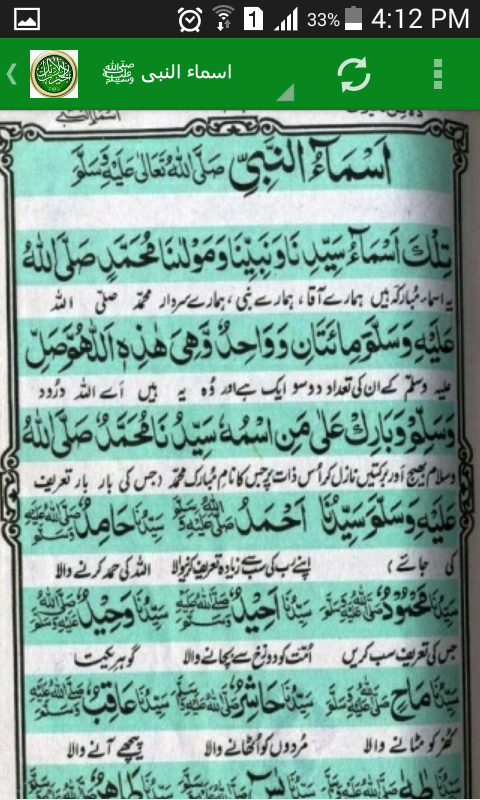 33% 4:12 PM
1
اسماء النبی ﷺ
اَسْمَآءُ النَّبِیِّ صَلَّی اللّٰهُ تَعَالٰی عَلَیْهِ وَسَلَّمَ
تِلْكَ اَسْمَآءُ سَیِّدِنَا وَنَبِیِّنَا وَمَوْلٰنَا مُحَمَّدٍ صَلَّی اللّٰهُ
یہ اسماء مُبارکہ ہیں ہمارے آقا، ہمارے نبی، ہمارے سردار محمّد صلّی اللہ
عَلَیْهِ وَسَلَّمَ مِائَتَانِ وَوَاحِدٌ وَّهِیَ هٰذِهٖ اَللّٰهُمَّ صَلِّ
علیہ وسلّم کے ان کی تعداد دو سو ایک ہے اور وُہ یہ ہیں اَے اللہ درُود
وَسَلِّمْ وَبَارِكْ عَلٰی مَنِ اسْمُهٗ سَیِّدُنَا مُحَمَّدٌ صَلَّی اللّٰهُ
وسلام بھیج اَور برکتیں نازل کر اُس ذات پر جس کا نام مُبارک محمّد (جس کی بار بار تعریف
عَلَیْهِ وَسَلَّمَ سَیِّدُنَا اَحْمَدُ ﷺ سَیِّدُنَا حَامِدٌ ﷺ
کی جائے) اپنے رب کی سب سے زیادہ تعریف کرنیوالا اللہ کی حمد کرنے والا
سَیِّدُنَا مَحْمُوْدٌ ﷺ سَیِّدُنَا اَحِیْدٌ ﷺ سَیِّدُنَا وَحِیْدٌ ﷺ
جس کی تعریف سب کریں اُمّت کو دوزخ سے بچانے والا گوہرِ یکتا
سَیِّدُنَا مَاحٍ ﷺ سَیِّدُنَا حَاشِرٌ ﷺ سَیِّدُنَا عَاقِبٌ ﷺ
کُفر کو مٹانے والا مُردوں کو اُٹھانے والا پیچھے آنے والا
سَیِّدُنَا طٰهٰ ﷺ سَیِّدُنَا یٰسٓ ﷺ سَیِّدُنَا طَاهِرٌ ﷺ